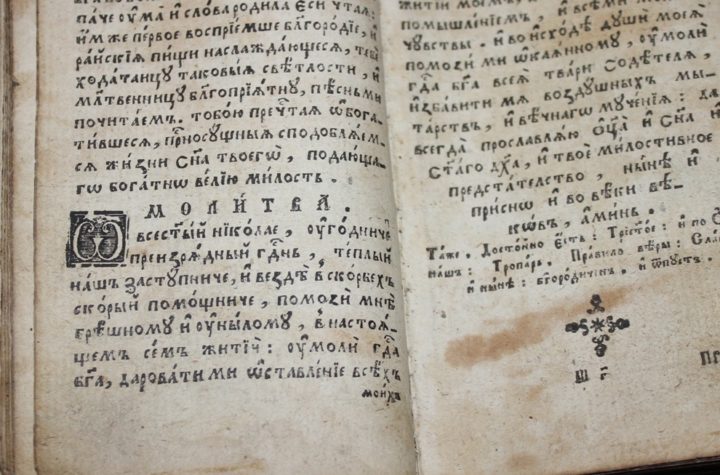 паче ᲂу҆ма̀ и҆ сло́ва родила̀ є҆сѝ чⷭ҇таѧ:
и҆́мже пе́рвое воспрїе́мше благоро́дїе, и҆
ра́йскїѧ пи́щи наслажда́ющесѧ, тебѐ
хода́таицꙋ таковы́ѧ свѣ́тлости, и҆
мл҃твенницꙋ благопрїѧ́тнꙋ, пѣ́сньми
почита́емъ. тобо́ю пречⷭ҇таѧ ѡ҆бога-
ти́вшесѧ, прⷭ҇носꙋ́щныѧ сподоблѧ́ем-
сѧ жи́зни сн҃а твоегѡ̀, подаю́ща-
гѡ бога́тнѡ ве́лїю ми́лость.
МОЛИ́ТВА.
Ѽ всест҃ы́й нїко́лае, ᲂу҆го́дниче
преизрѧ́дный гдⷭ҇нь, те́плый
на́шъ застꙋ́пниче, и҆ вездѣ̀ в̾ ско́рбехъ
ско́рый помо́щниче, помозѝ мнѣ̀
грѣ́шномꙋ и҆ ᲂу҆ны́ломꙋ, в̾ настоѧ́-
щемъ се́мъ житїѝ: ᲂу҆молѝ гдⷭ҇а
бг҃а, дарова́ти ми ѡ҆ставле́нїе всѣ́хъ
мои́хъ
житїѝ мое́мъ,
помышле́нїемъ, и҆ всѣ́ми мои́ми
чꙋ́вствы. и҆ во и҆схо́дѣ дꙋшѝ моеѧ̀
помози́ ми ѻ҆каѧ́нномꙋ, ᲂу҆молѝ
гдⷭ҇а бг҃а всеѧ̀ тва́ри содѣ́телѧ,
и҆зба́вити мѧ̀ возд́ꙋшныхъ мы-
та́рствъ, и҆ вѣ́чнагѡ мꙋче́нїѧ: да
всегда̀ прославлѧ́ю ѻ҆ц҃а̀ и҆ сн҃а и҆
ст҃а́го дх҃а, и҆ твоѐ ми́лостивное
предста́тельство, ны́нѣ и҆
при́снѡ и҆ во вѣ́ки вѣ-
кѡ́въ, а҆ми́нь.
Та́же. Досто́йно є҆́сть: Трист҃о́е: и҆ по
на́шъ: Тропа́рь. Пра́вило вѣ́ры: Сла́
и҆ ны́нѣ: бг҃оро́диченъ. и҆ ѿпꙋ́стъ.